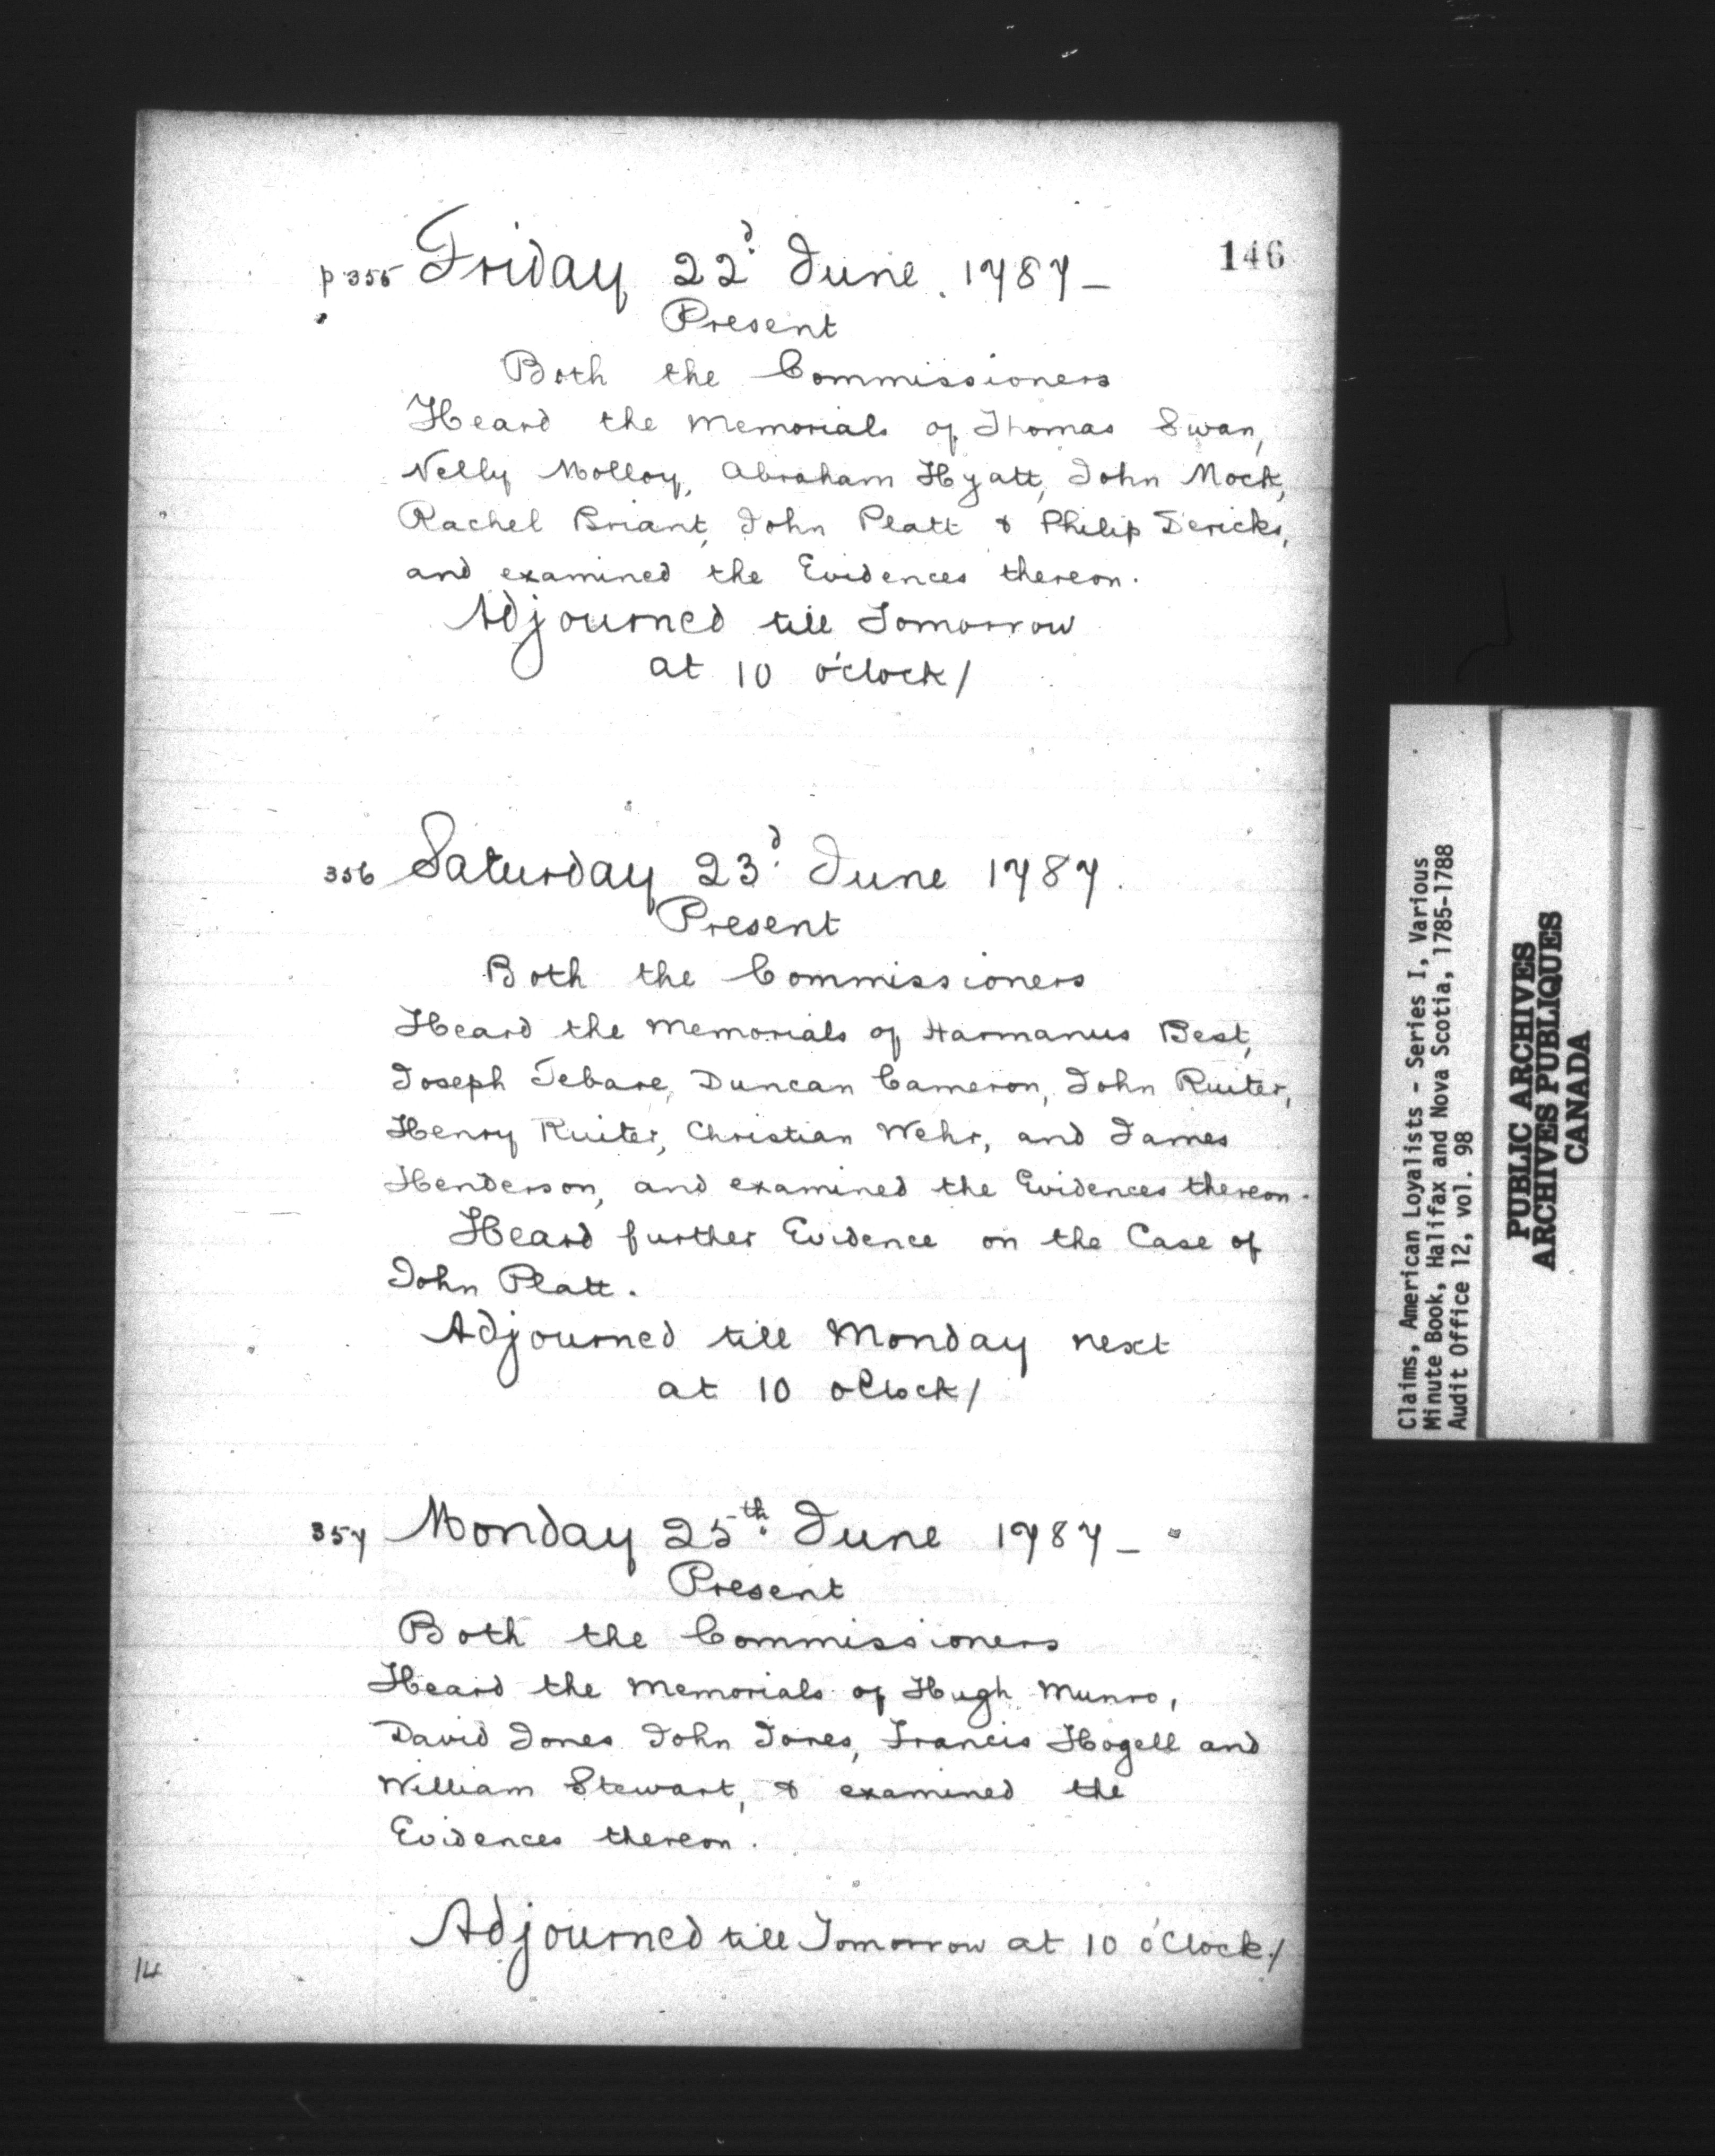 146
p 355 Friday 22d June. 1787 —
Present
Both the Commissioners
Heard the Memorials of Thomas Swan,
Nelly Molloy, Abraham Hyatt, John Mock,
Rachel Briant, John Platt & Philip Dericks,
and examined the Evidences thereon.
Adjourned till Tomorrow
at 10 o'clock/
356 Saturday 23d June 1787.
Present
Both the Commissioners
Heard the Memorials of Harmanus Best,
Joseph Tebare, Duncan Cameron, John Ruiter,
Henry Ruiter, Christian Wehr, and James
Henderson, and examined the Evidences thereon.
Heard further Evidence on the Case of
John Platt.
Adjourned till Monday next
at 10 oClock/
357 Monday 25th June 1787 —
Present
Both the Commissioners
Heard the Memorials of Hugh Munro,
David Jones John Jones, Francis Hogell and
William Stewart, & examined the
Evidences thereon.
Adjourned till Tomorrow at 10 o'Clock./
14
Claims, American Loyalists - Series I, Various
Minute Book, Halifax and Nova Scotia, 1785-1788
Audit Office 12, vol. 98
PUBLIC ARCHIVES
ARCHIVES PUBLIQUES
CANADA